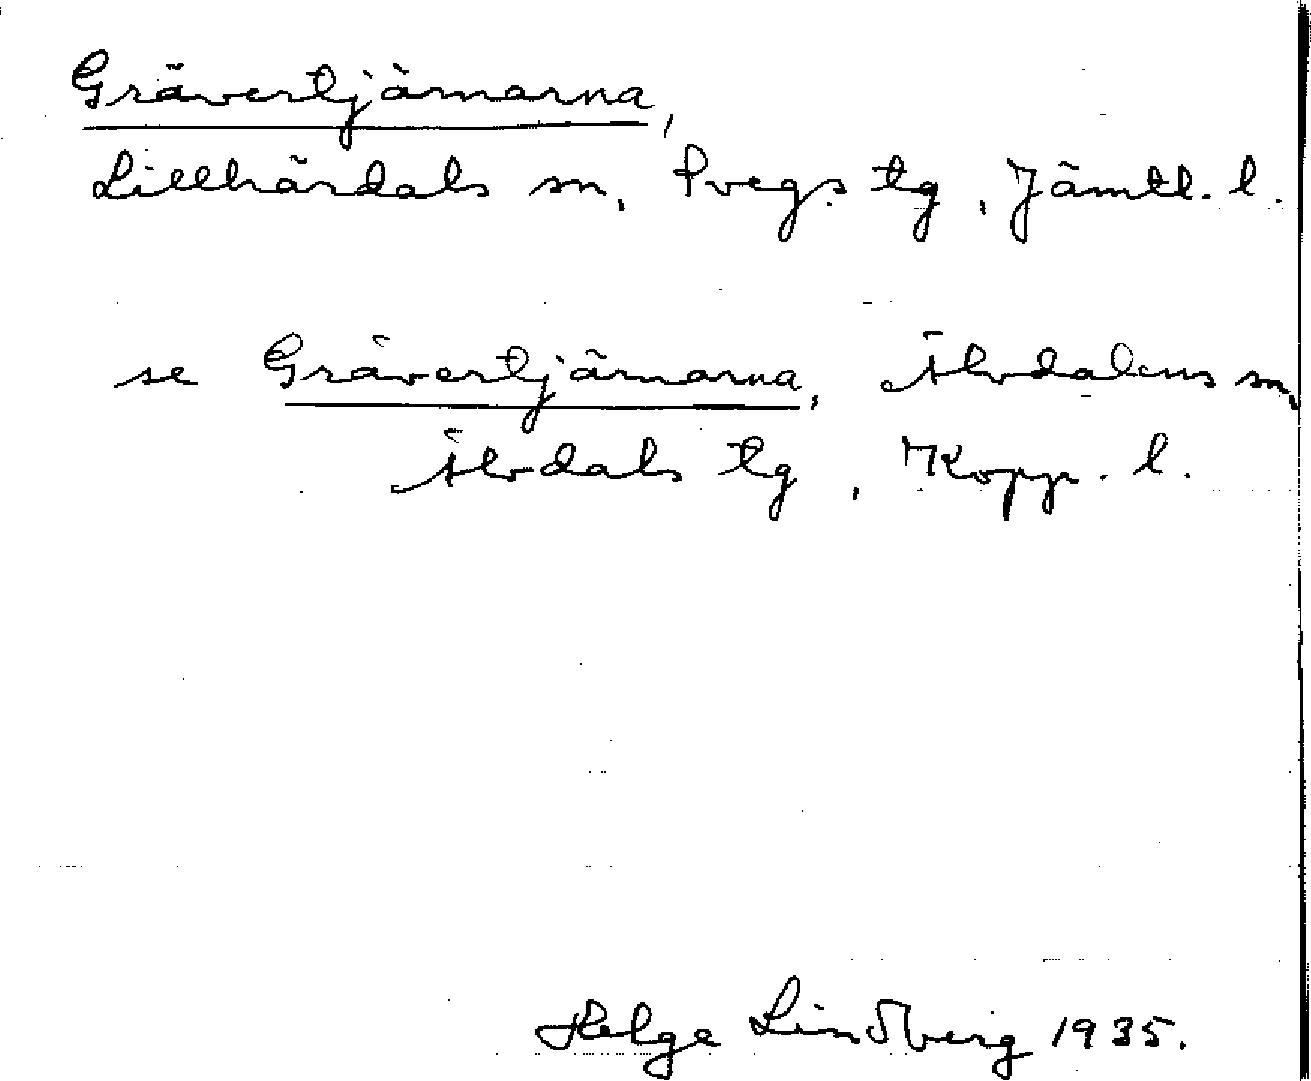 Grävertjärnarna,
Lillhärdals sn, Svegs tg, Jämtl. l.
se Grävertjärnarna, Älvdalens sn,
Älvdals tg, Kopp. l.
Helge Lindberg 1935.